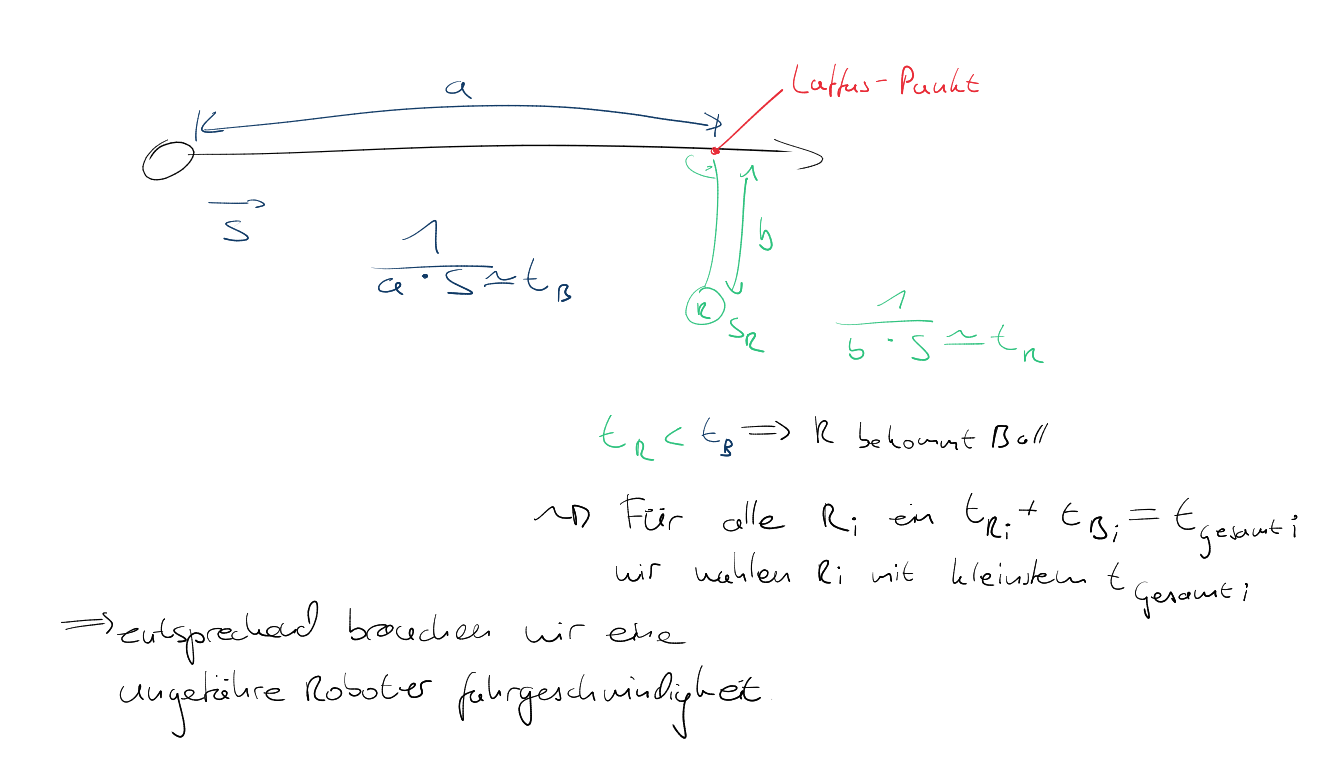 a
Lattus-Punkt
s
b
1
a · s ≃ t_B
R
s_R
1
b · s ≃ t_R
t_R < t_B ⇒ R bekommt Ball
Für alle R_i ein t_R_i + t_B_i = t_gesamt i
wir wählen R_i mit kleinstem t_Gesamt i
⇒ entsprechend brauchen wir eine
ungefähre Roboter fahrgeschwindigkeit